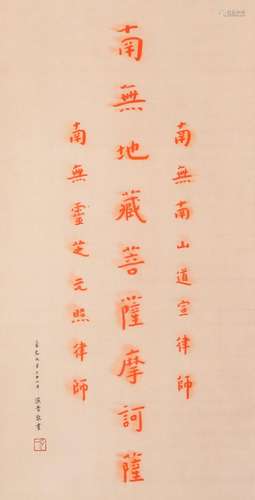 南無南山道宣律師
南無地藏菩薩摩訶薩
南無靈芝元照律師